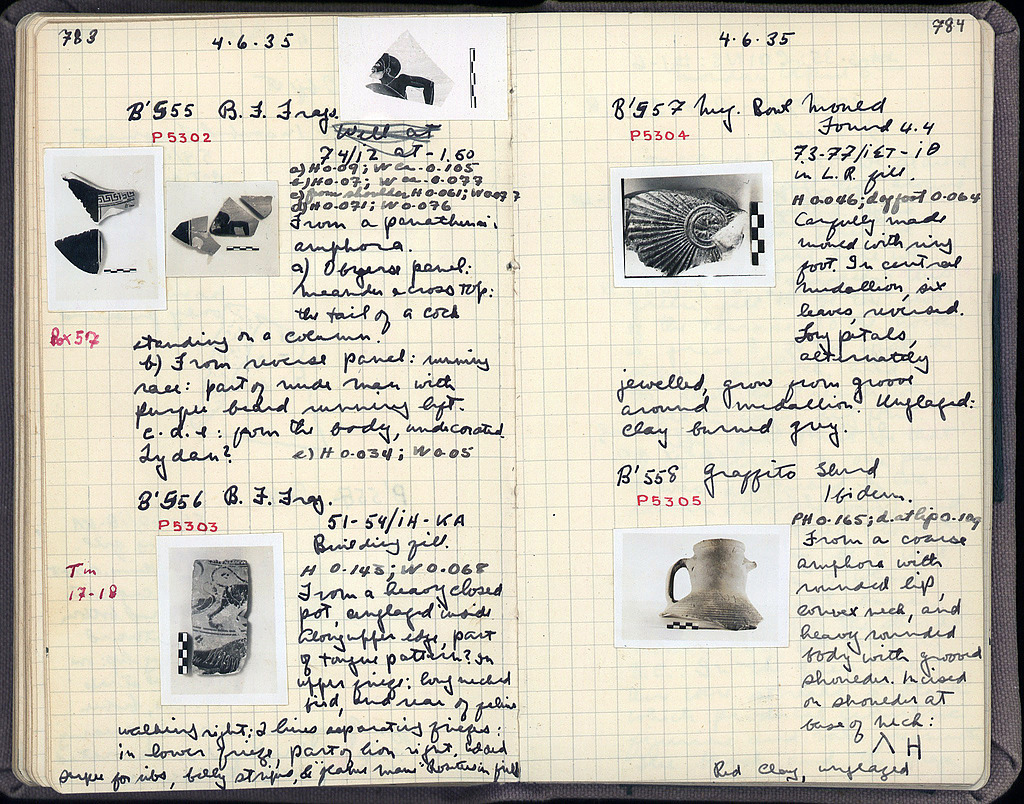 783
4·6·35
B'955 B. F. Frags.
P5302
Well at
74/12 at -1.50
a) H 0.09; W ca. 0.105
b) H 0.07; W ca. 0.077
c) from shoulder H 0.061; W 0.077
d) H 0.071; W 0.076
From a panathenaic
amphora.
a) Obverse panel:
meander across top:
the tail of a cock
Box 57
standing on a column.
b) From reverse panel: running
race: part of nude man with
purple beard running left.
c. d. e: from the body, undecorated.
Lydan?
e) H 0.034; W 0.05
B'956 B. F. Frag.
P5303
51-54/ΙΗ-ΚΑ
Building fill.
Tin
17-18
H 0.143; W 0.068
From a heavy closed
pot, unglazed inside
Along upper edge, part
of tongue pattern? In
upper frieze: long necked
bird, and rear of feline
walking right; 2 lines separating friezes:
in lower frieze, part of lion right, added
purple for ribs, belly stripe, & mane. Rosettes in field
784
4·6·35
B'957 Meg. Bowl Mould
P5304
Found 4.4
73-77/ΙΣΤ-ΙΘ
in L. R. fill.
H 0.046; d. foot 0.064
Carefully made
mould with ring
foot. In central
medallion, six
leaves, reversed.
Long petals,
alternately
jewelled, grow from groove
around medallion. Unglazed:
clay burned grey.
B'558 Graffito Sherd
P5305
Ibidem.
PH 0.165; d. at lip 0.109
From a coarse
amphora with
rounded lip,
convex neck, and
heavy rounded
body with grooved
shoulder. Incised
on shoulder at
base of neck:
ΛΗ
Red clay, unglazed